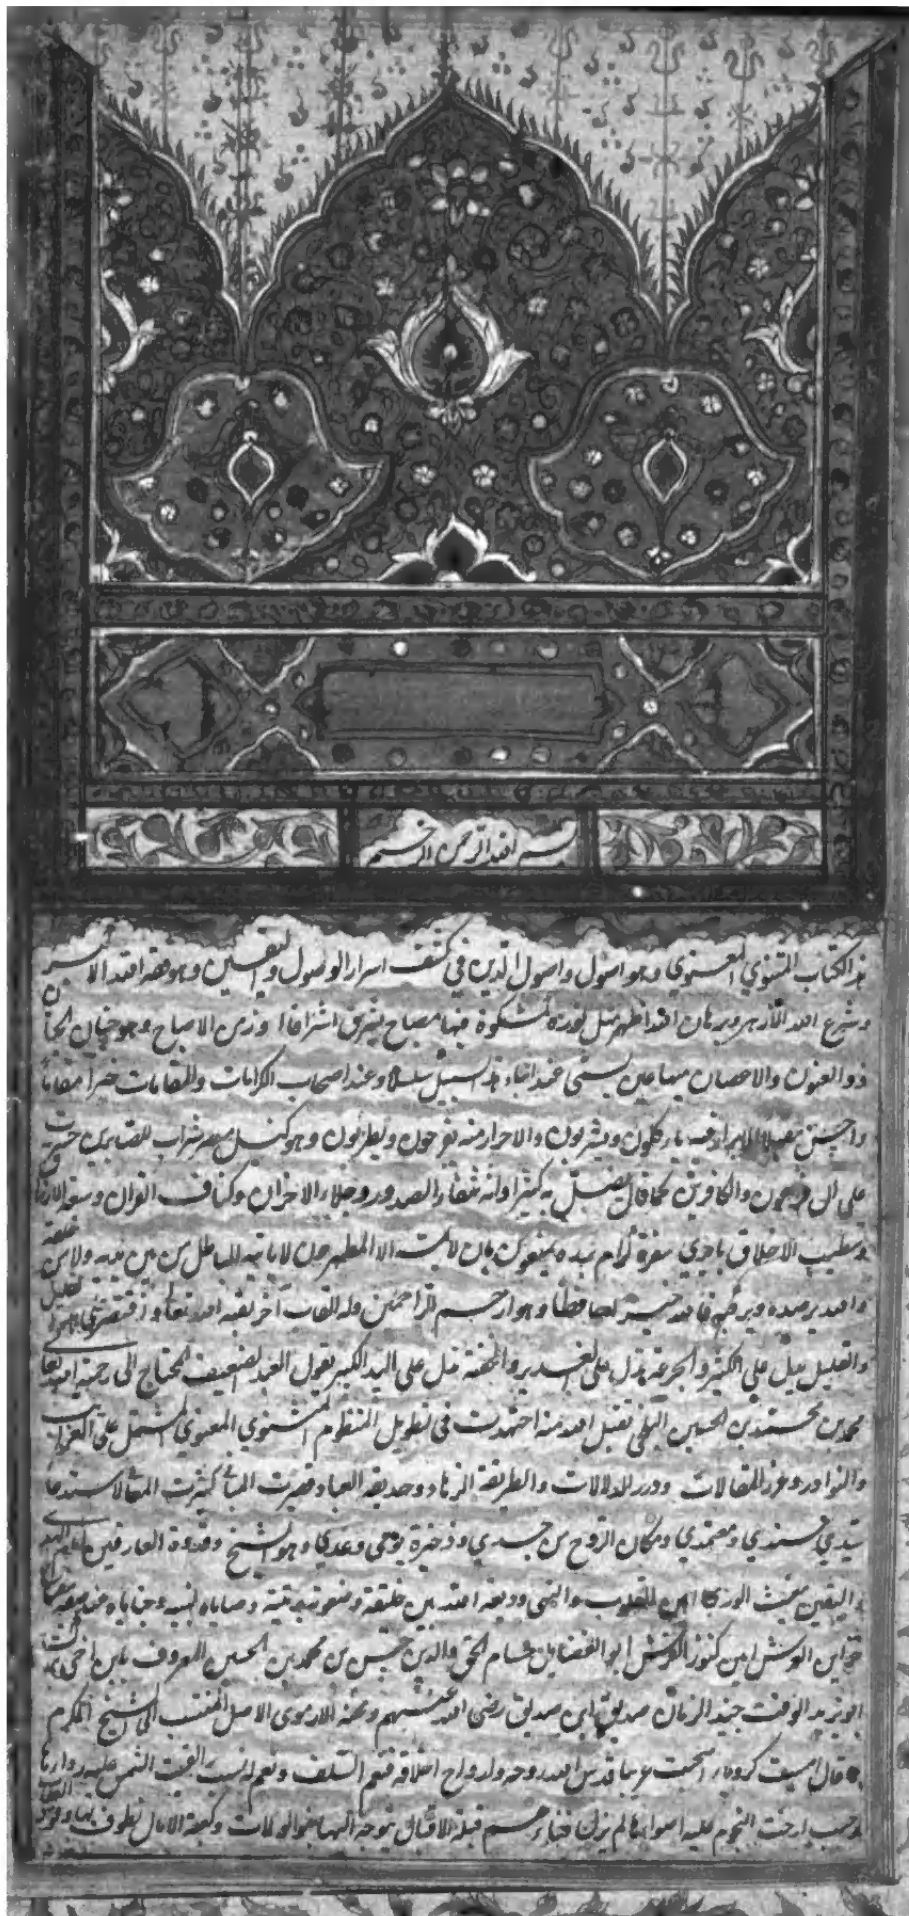 بسم الله الرحمن الرحيم
هذا الكتاب المثنوي المعنوي وهو اصول واصول الدين في كشف اسرار الوصول واليقين وهو فقه الله الا
وشرع الله الازهر وبرهان الله الاظهر مثل نوره كمشكوة فيها مصباح يشرق اشراقا انور من الاصباح وهو جنان الجنان
ذو العيون والاغصان منها عين تسمى عند ابناء هذا السبيل سلسبيلا وعند اصحاب الكرامات والمقامات خير مقاما
واحسن مقيلا الابرار فيه ياكلون ويشربون والاحرار منه يفرحون ويطربون وهو كنيل مصر شراب للصابرين حسرت
على ال فرعون والكافرين كما قال يضل به كثيرا وانه شفاء الصدور وجلاء الاحزان وكشاف القران وسعة الارزاق
وتطييب الاخلاق بايدي سفرة كرام بررة يمنعون بان لا يمسه الا المطهرون لا ياتيه الباطل من بين يديه ولا من خلفه
والله يرصده ويرقبه فالله خير حافظا وهو ارحم الراحمين وله القاب اخر لقبه الله تعالى واقتصرنا على هذا القليل
والقليل يدل على الكثير والجرعة تدل على الغدير والحفنة تدل على البيدر الكبير يقول العبد الضعيف المحتاج الى رحمة الله تعالى
محمد بن محمد بن الحسين البلخي تقبل الله منه اجتهدت في تطويل المنظوم المثنوي المعنوي المشتمل على الغرايب
والنوادر وغرر المقالات ودرر الدلالات والطريقة الزهاد وحديقة العباد قصيرت المباني كثيرت المعاني لاستدعاء
سيدي وسندي ومعتمدي ومكان الروح من جسدي وذخيرة يومي وغدي وهو الشيخ وقدوة العارفين امام الهدى
واليقين مغيث الورى امين القلوب والنهى وديعة الله بين خليقته وصفوته في بريته ووصاياه لنبيه وخباياه عند صفيه مفتاح
خزاين العرش امين كنوز الفرش ابو الفضايل حسام الحق والدين حسن بن محمد بن الحسين المعروف بابن اخي ترك
ابو يزيد الوقت جنيد الزمان صديق ابن صديق رضي الله عنهم وعنه الارموي الاصل المنتسب الى الشيخ المكرم
قال امسيت كرديا واصبحت عربيا قدس الله روحه وارواح اخلافه فنعم السلف ونعم له نسب القت الشمس عليه رداءها
وحسب ارخت النجوم عليه اضواءها لم يزل فناءهم قبلة الاقبال يتوجه اليها بنو الولاة وكعبة الامال يطوف بها وفود